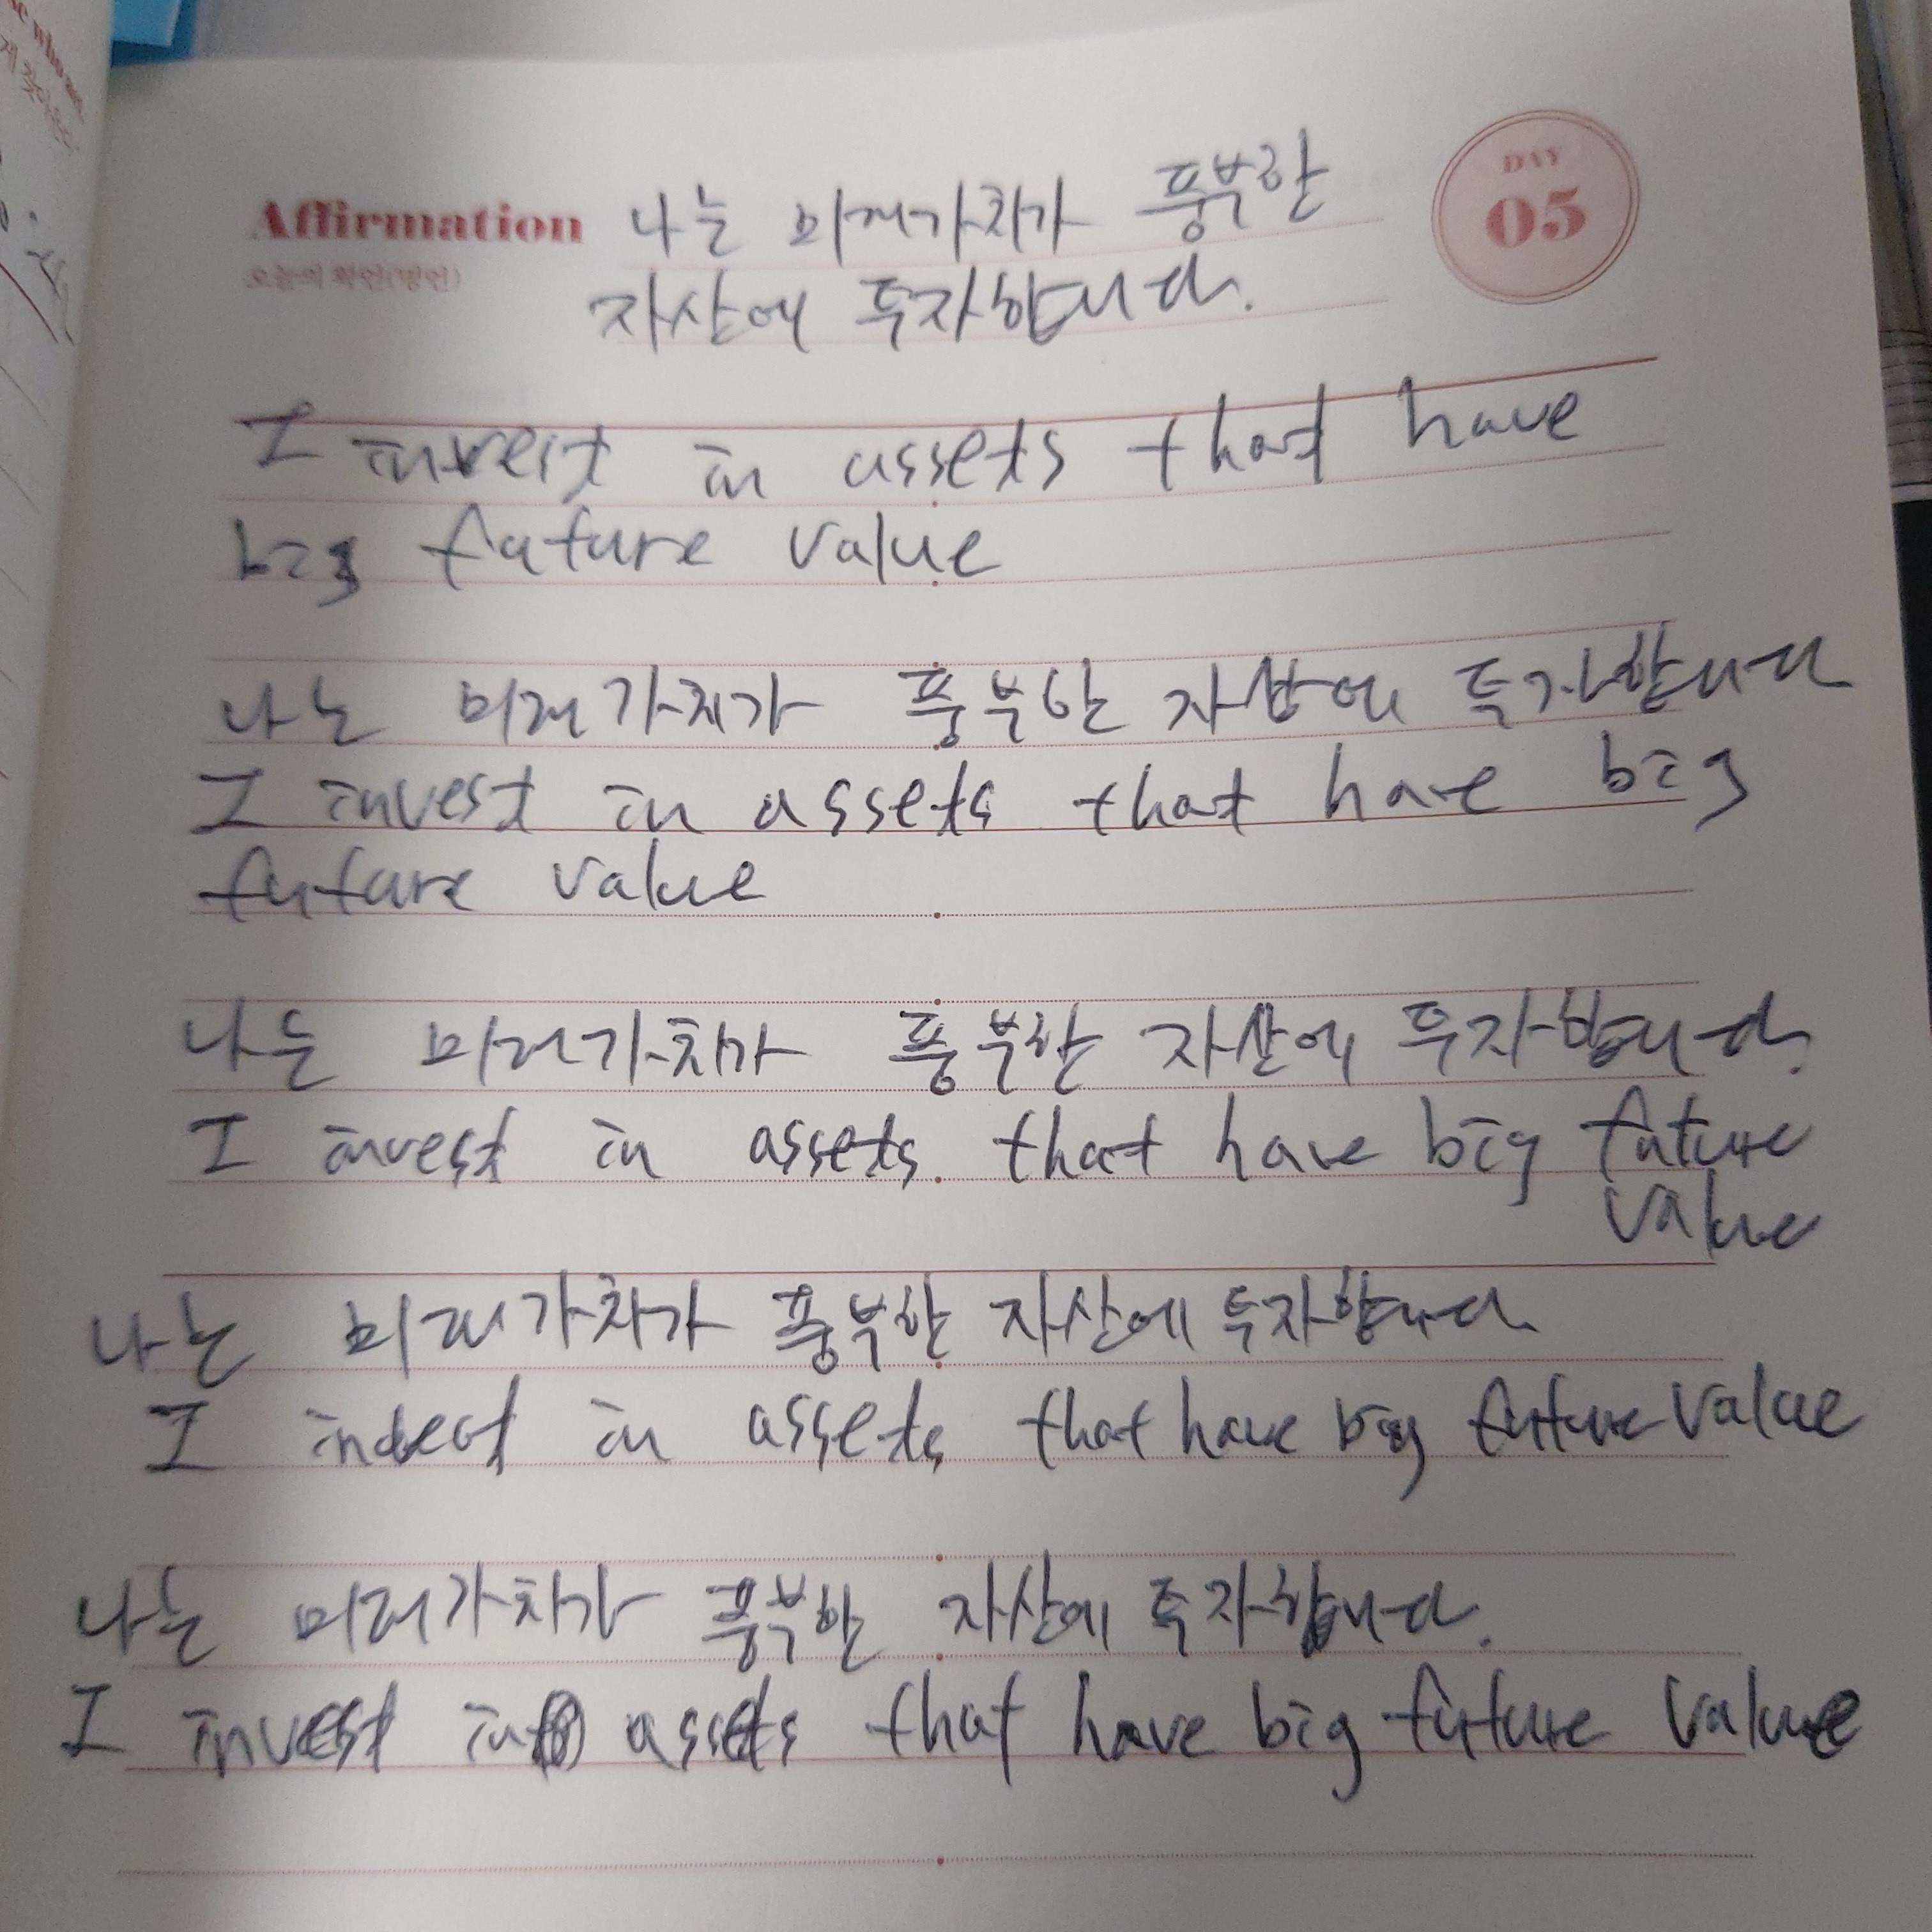 Affirmation 나는 미래가치가 풍부한
오늘의 확언(명언) 자산에 투자합니다.
DAY
05
I invest in assets that have
big future value
나는 미래가치가 풍부한 자산에 투자합니다
I invest in assets that have big
future value
나는 미래가치가 풍부한 자산에 투자합니다.
I invest in assets that have big future
value
나는 미래가치가 풍부한 자산에 투자합니다
I invest in assets that have big future value
나는 미래가치가 풍부한 자산에 투자합니다.
I invest in assets that have big future value